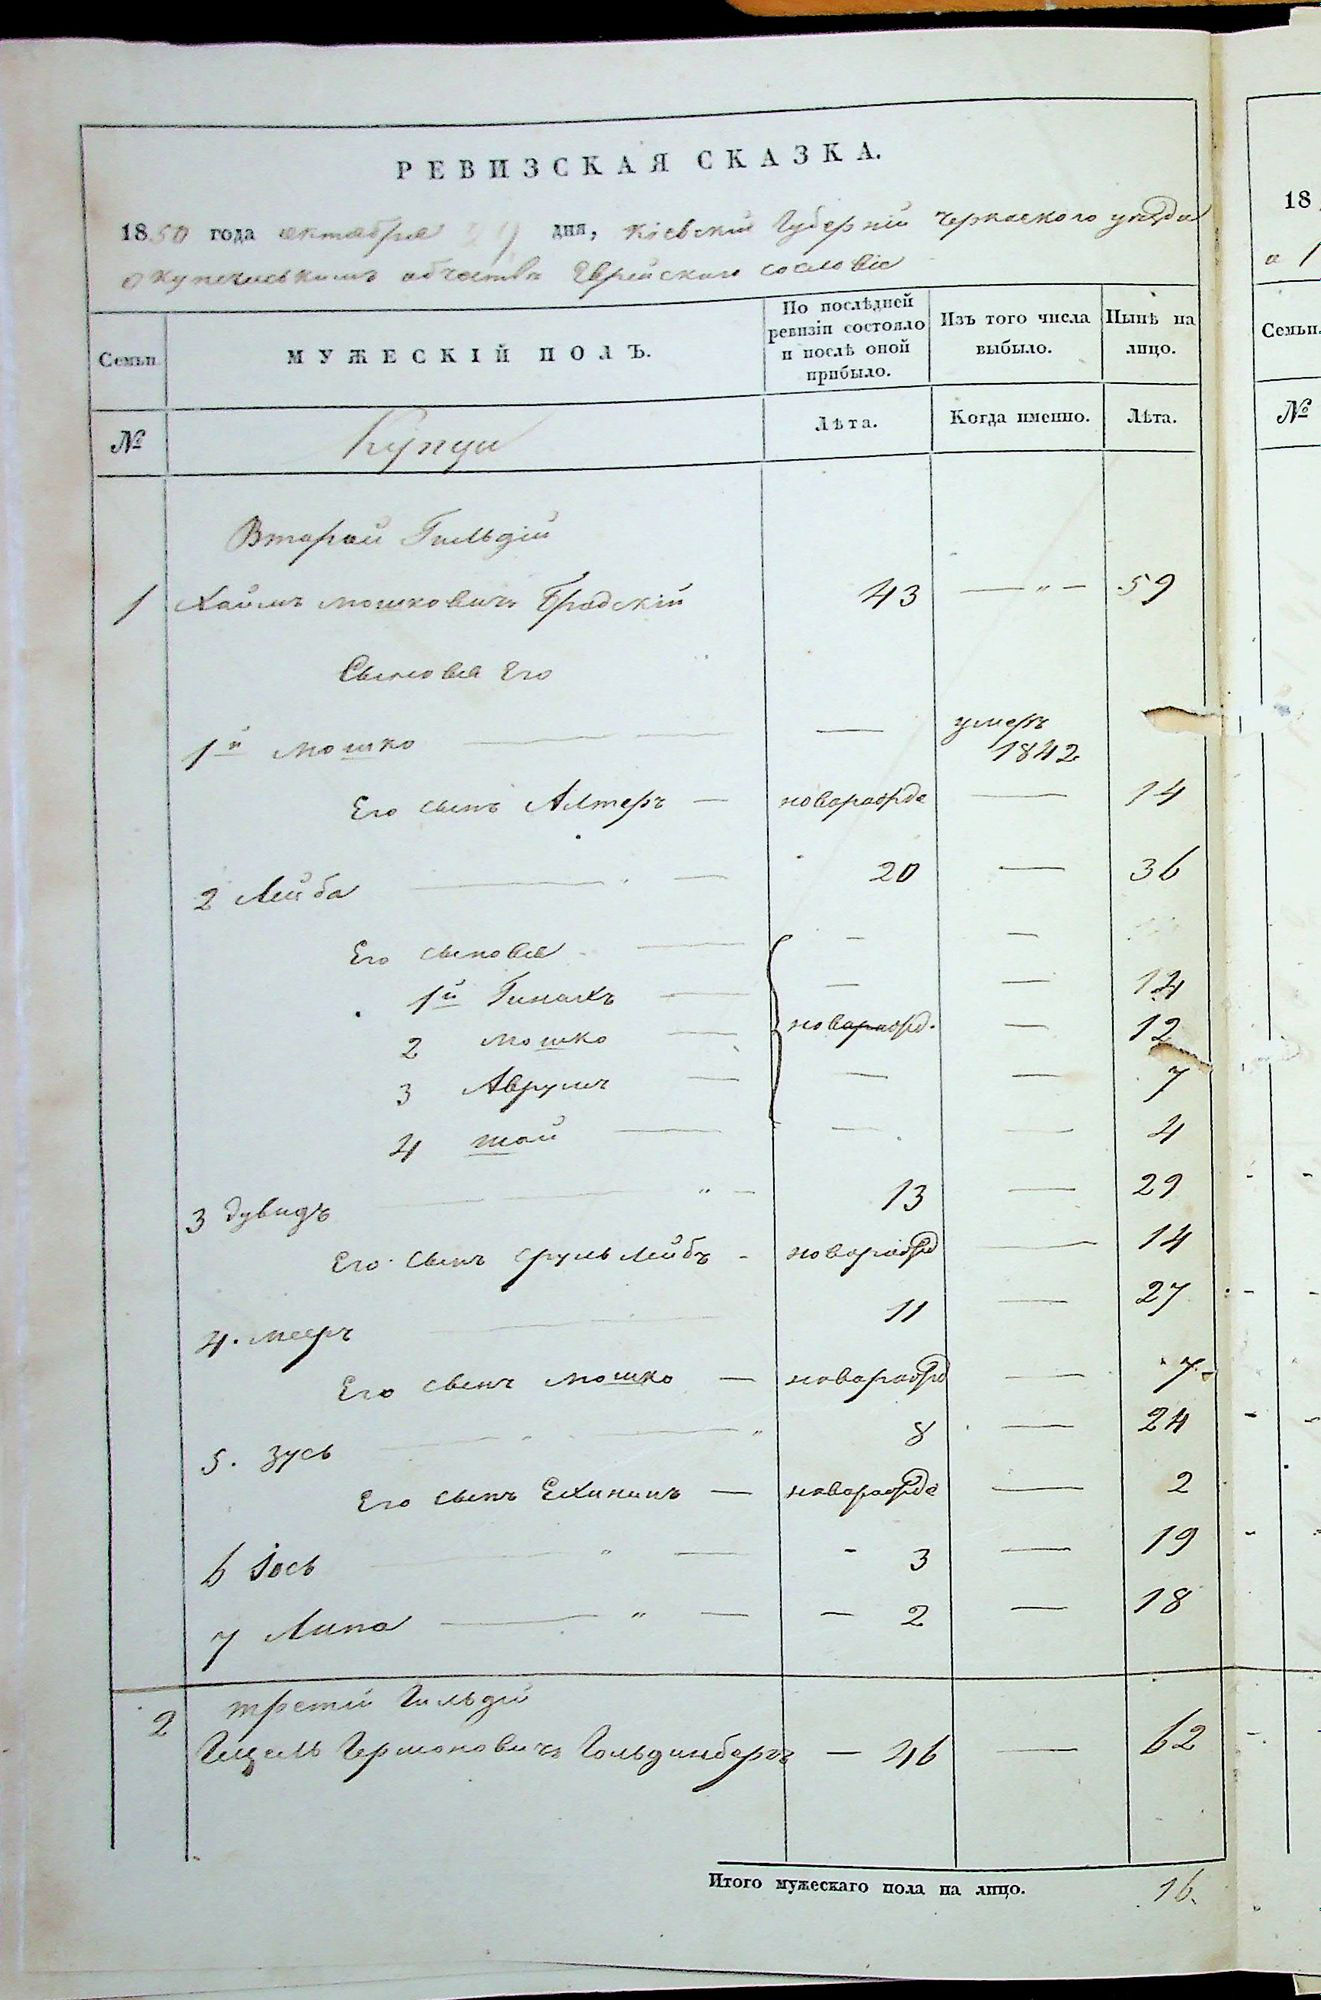 РЕВИЗСКАЯ СКАЗКА.
1850 года октября дня, Кіевской Губерніи Черкаского уезда
о купеческомъ обществѣ Еврейскаго сословія
Семьи.
МУЖЕСКІЙ ПОЛЪ.
По послѣдней ревизіи состояло и послѣ оной прибыло.
Изъ того числа выбыло.
Нынѣ на лицо.
№
Купцы
Лѣта.
Когда именно.
Лѣта.
Второй Гильдіи
1 Хаимъ Мошковичъ Бродскій 43 — „ — 59
Сыновья Его
1й Мошко — — умеръ 1842
Его сынъ Алтеръ — новорожде — 14
2 Лейба — 20 — 36
Его сыновья — — —
1й — — — 14
2 Мошко — новорожд. — 12
3 Аврумъ — — — 7
4 Шай — — — 4
3 Дувидъ — „ — 13 — 29
Его сынъ Сруль Лейбъ - новорожд — 14
4. Мееръ — 11 — 27
Его сынъ Мошко — новорожд — 7
5. Зусь — „ 8 — 24
Его сынъ — новорожде — 2
6 Іось — „ — - 3 — 19
7 Липа — „ — — 2 — 18
2 Третей Гильдіи
Гермоновичъ Гольденбергъ — 46 — 62
Итого мужескаго пола на лицо. 16.
18
Семьи.
№